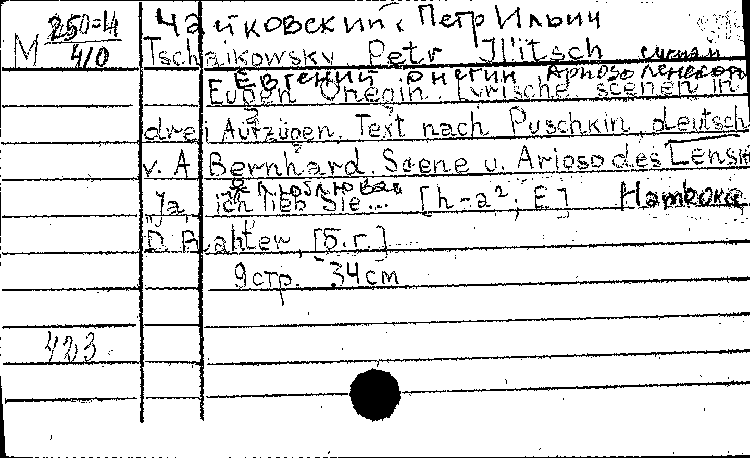 Чайковский, Петр Ильич
M 250-4/410
Tschaikowsky Petr Il'itsch
Евгений Онегин Ариозо Ленского
Eugen Onegin. Lyrische scenen in
drei Aufzügen. Text nach Puschkin, deutsch
v. A. Bernhard. Scene u. Arioso des Lenski
Я люблю вас
"Ja, ich lieb Sie... [h-a²; E] Hamburg
D. Rahter, [б.г.]
9 стр. 34 cm
423